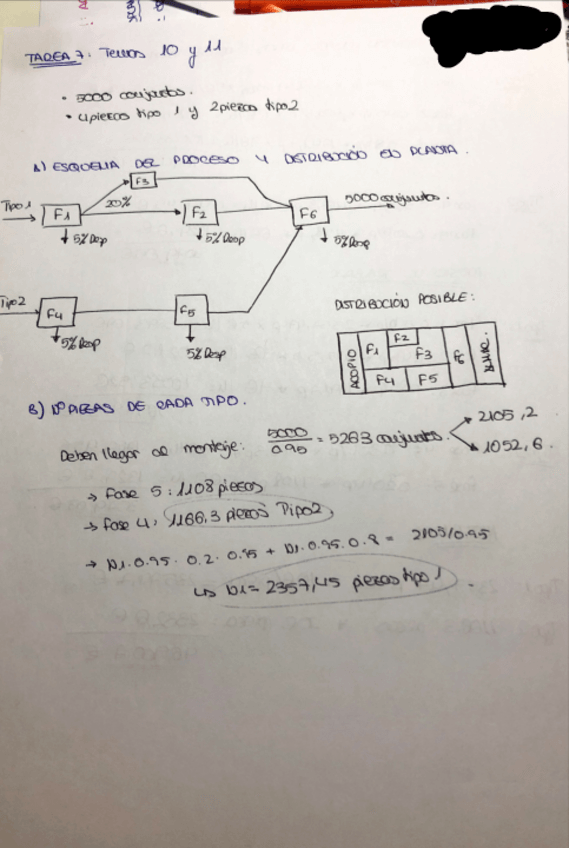 TAREA 7: Temas 10 y 11
• 5000 conjuntos.
• 4 piezas tipo 1 y 2 piezas tipo 2
A) ESQUEMA DEL PROCESO Y DISTRIBUCIÓN EN PLANTA.
F3
Tipo 1
F1
20%
F2
F6
5000 conjuntos.
5% Desp
5% Desp
5% Desp
Tipo 2
F4
F5
5% Desp
5% Desp
DISTRIBUCIÓN POSIBLE:
ACOPIO
F1
F2
F3
F4
F5
F6
B) Nº PIEZAS DE CADA TIPO.
Deben llegar al montaje: 5000/0.95 = 5263 conjuntos.
2105,2
1052,6.
→ Fase 5: 1108 piezas
→ Fase 4: 1166,3 piezas Tipo 2
→ N1·0.95·0.2·0.95 + N1·0.95·0.8 = 2105/0.95
↳ N1 = 2357,45 piezas tipo 1.